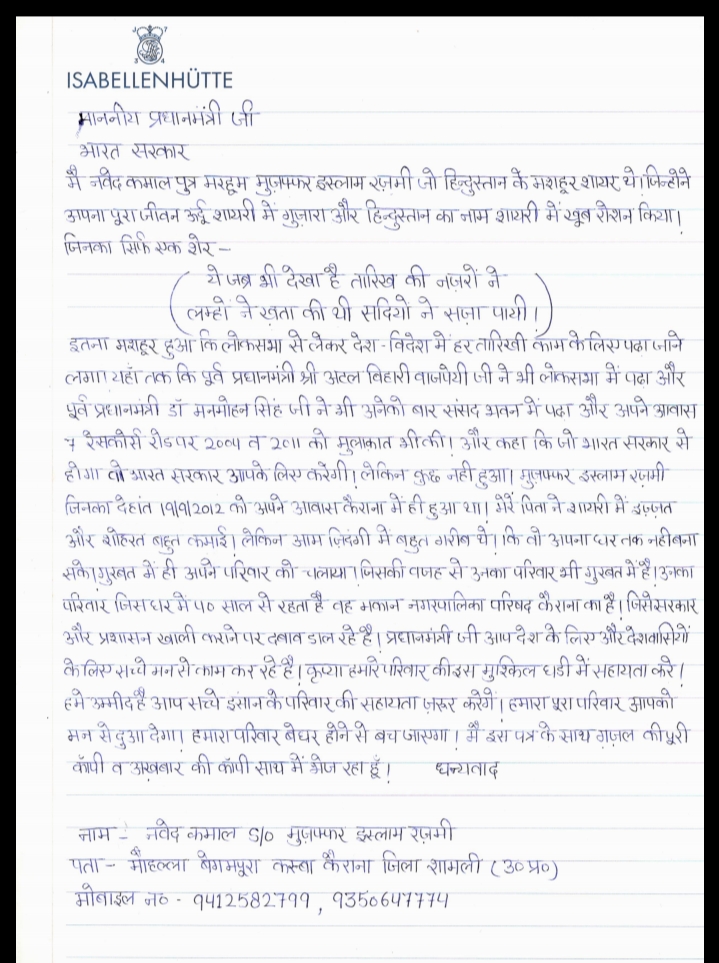 ISABELLENHÜTTE
माननीय प्रधानमंत्री जी
भारत सरकार
मै नवेद कमाल पुत्र मरहूम मुज़फ्फर इस्लाम रज़मी जो हिन्दुस्तान के मशहूर शायर थे। जिन्होने
अपना पूरा जीवन उर्दू शायरी में गुज़ारा और हिन्दुस्तान का नाम शायरी में खूब रोशन किया।
जिनका सिर्फ एक शेर –
ये जब्र भी देखा है तारिख की नज़रों ने
लम्हों ने ख़ता की थी सदियों ने सज़ा पायी।
इतना मशहूर हुआ कि लोकसभा से लेकर देश-विदेश में हर तारिखी काम के लिए पढा जाने
लगा। यहाँ तक कि पूर्व प्रधानमंत्री श्री अटल विहारी वाजपेयी जी ने भी लोकसभा में पढा और
पूर्व प्रधानमंत्री डॉ मनमोहन सिंह जी ने भी अनेको बार संसद भवन में पढा और अपने आवास
7 रेसकोर्स रोड पर 2004 व 2011 को मुलाकात भी की। और कहा कि जो भारत सरकार से
होगा वो भारत सरकार आपके लिए करेगी। लेकिन कुछ नही हुआ। मुज़फ्फर इस्लाम रज़मी
जिनका देहांत 19/9/2012 को अपने आवास कैराना में ही हुआ था। मेरे पिता ने शायरी में इज़्ज़त
और शोहरत बहुत कमाई। लेकिन आम ज़िदंगी में बहुत गरीब थे। कि वो अपना घर तक नही बना
सके। गुरबत में ही अपने परिवार को चलाया। जिसकी वजह से उनका परिवार भी गुरबत में है। उनका
परिवार जिस घर में 40 साल से रहता है वह मकान नगरपालिका परिषद कैराना का है। जिसे सरकार
और प्रशासन खाली कराने पर दबाव डाल रहे है। प्रधानमंत्री जी आप देश के लिए और देशवासियों
के लिए सच्चे मन से काम कर रहे है। कृप्या हमारे परिवार की इस मुश्किल घडी में सहायता करे।
हमे उम्मीद है आप सच्चे इंसान के परिवार की सहायता ज़रूर करेगें। हमारा पूरा परिवार आपको
मन से दुआ देगा। हमारा परिवार बेघर होने से बच जाएगा। मै इस पत्र के साथ ग़ज़ल की पूरी
कॉपी व अख़बार की कॉपी साथ में भेज रहा हूँ। धन्यवाद
नाम – नवेद कमाल S/o मुज़फ्फर इस्लाम रज़मी
पता – मौहल्ला बेगमपुरा कस्बा कैराना जिला शामली (उ० प्र०)
मोबाइल न० - 9412582799, 9350647774